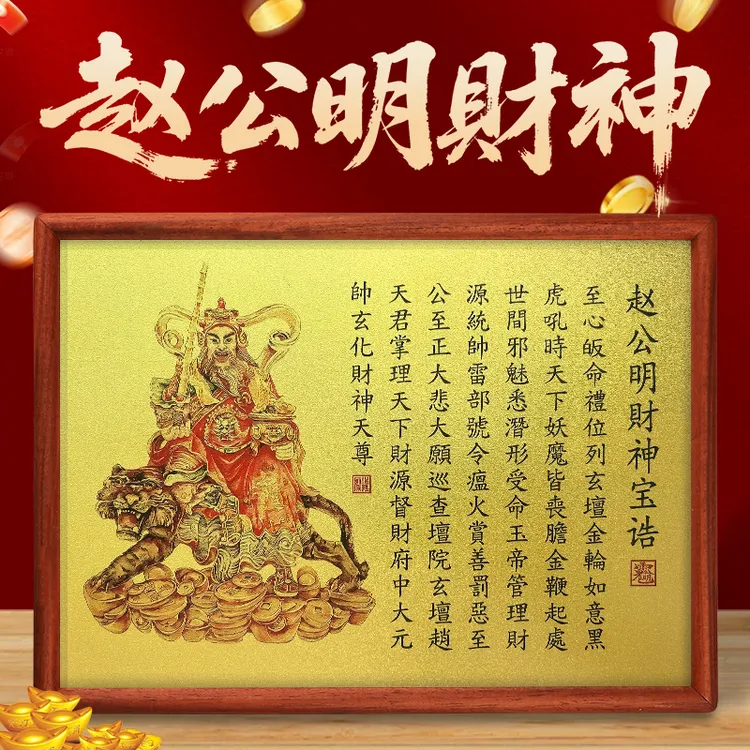 赵公明財神
赵公明財神宝诰
至心皈命禮位列玄壇金輪如意黑
虎吼時天下妖魔皆喪膽金鞭起處
世間邪魅悉潛形受命玉帝管理財
源統帥雷部號令瘟火賞善罰惡至
公至正大悲大願巡查壇院玄壇趙
天君掌理天下財源督財府中大元
帥玄化財神天尊